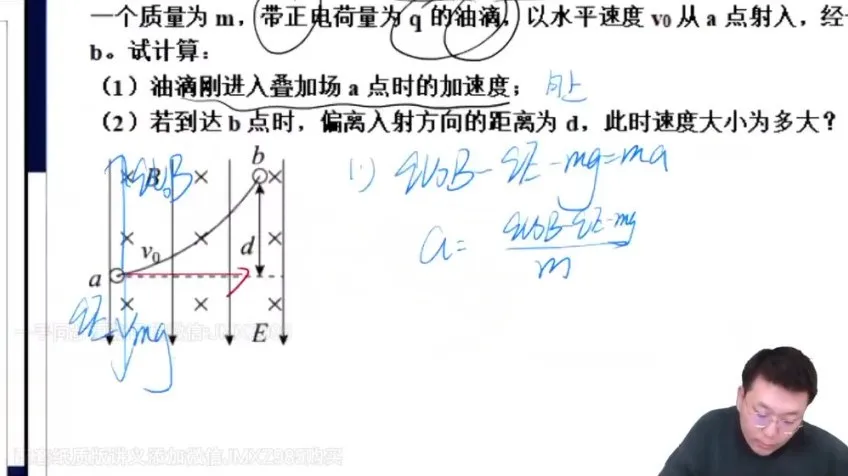 一个质量为 m，带正电荷量为 q 的油滴，以水平速度 v₀ 从 a 点射入，经
b。试计算：
（1）油滴刚进入叠加场 a 点时的加速度；向上
（2）若到达 b 点时，偏离入射方向的距离为 d，此时速度大小为多大？
B qv₀B b
1) qv₀B - qE - mg = ma
v₀ d
a = qv₀B - qE - mg
m
a
qE mg E